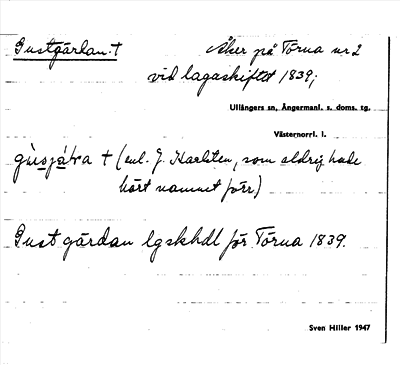 Gustgärdan. † Åker på Törna nr 2
vid lagaskiftet 1839;
Ullångers sn, Ångermanl. s. doms. tg.
Västernorrl. l.
† (enl. J. Karlsten, som aldrig hade
hört namnet förr)
Gustgärdan lgskhdl för Törna 1839.
Sven Hiller 1947